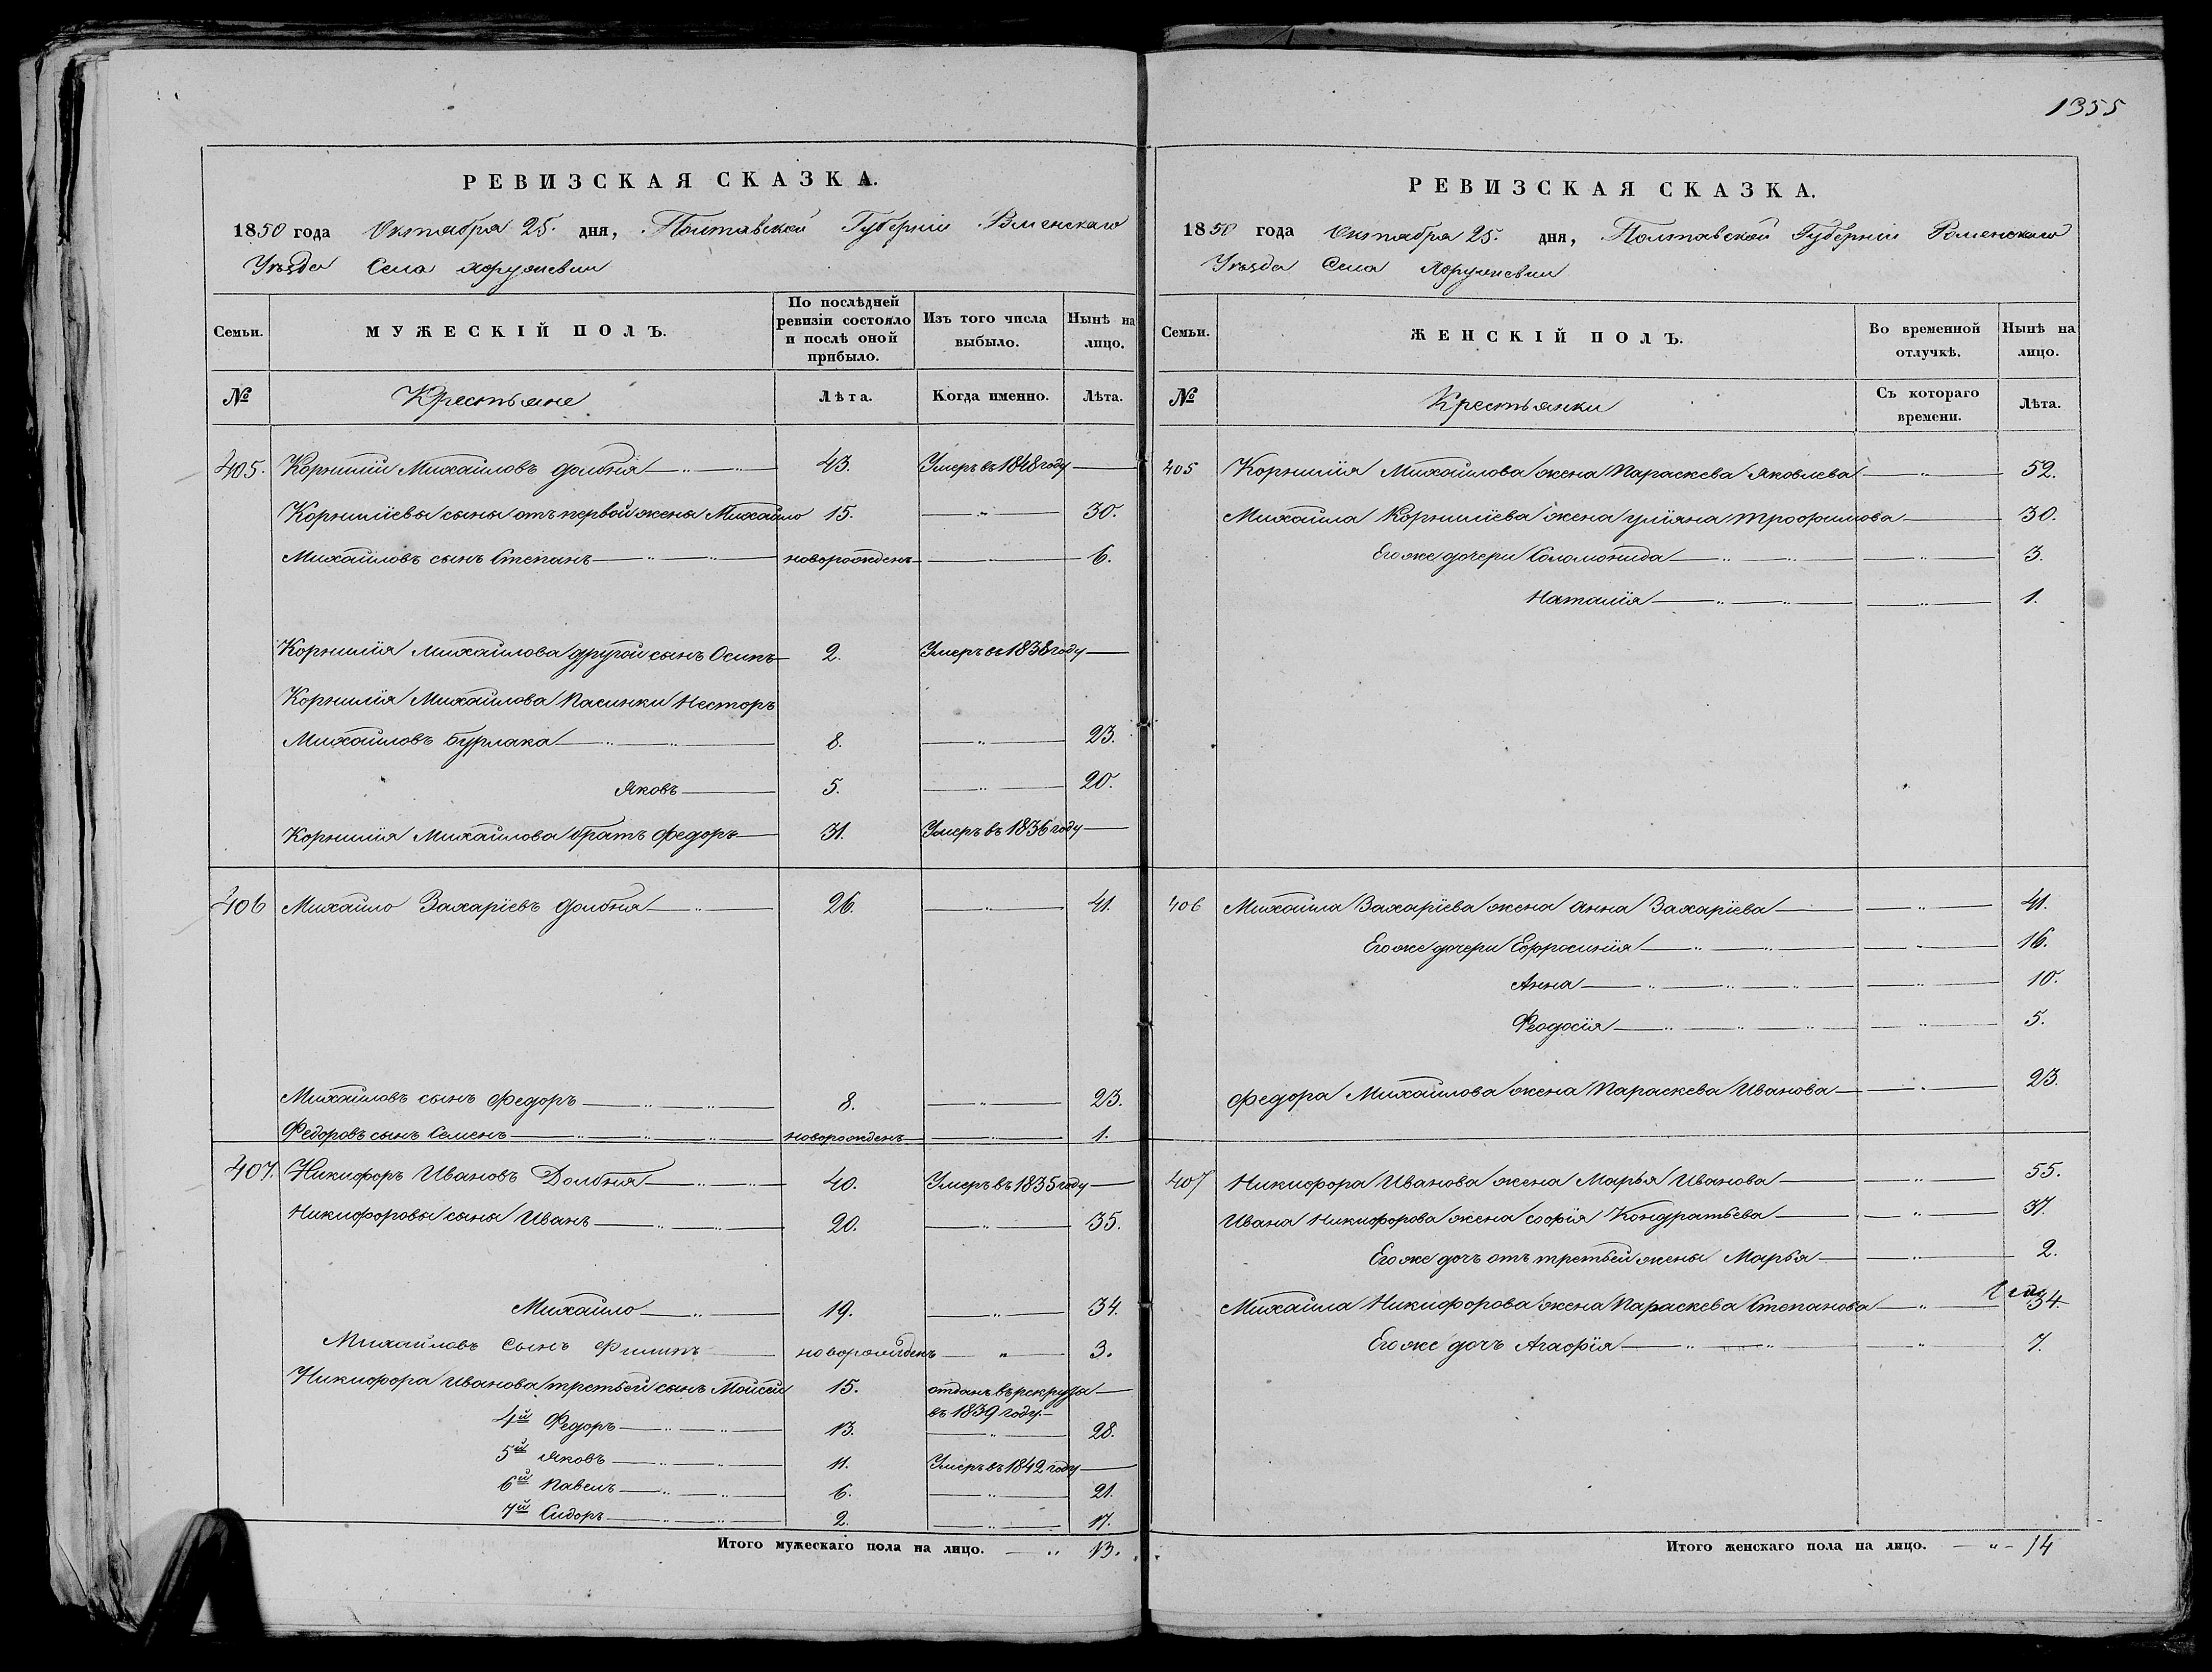 РЕВИЗСКАЯ СКАЗКА.
1850 года Октября 25. дня, Полтавской Губерніи Роменскаго
Уѣзда Села
Семьи.
МУЖЕСКІЙ ПОЛЪ.
По послѣдней ревизіи состояло и послѣ оной прибыло.
Изъ того числа выбыло.
Нынѣ на лицо.
№ Крестьяне Лѣта. Когда именно. Лѣта.
405. Корнилій Михайловъ Долбня 43. Умеръ въ 1848 году
Корниліевы сыны отъ первой жены Михайло 15. 30.
Михайловъ сынъ Степанъ новорожденъ 6.
Корнилія Михайлова другой сынъ Осипъ 2. Умеръ въ 1838 году
Корнилія Михайлова пасинки Несторъ
Михайловъ Бурлака 8. 23.
Яковъ 5. 20.
Корнилія Михайлова братъ Федоръ 31. Умеръ въ 1836 году
406 Михайло Захаріевъ Долбня 26. 41.
Михайловъ сынъ Федоръ 8. 23.
Федоровъ сынъ Семенъ новорожденъ 1.
407. Никифоръ Ивановъ Долбня 40. Умеръ въ 1835 году
Никифоровы сыны Иванъ 20. 35.
Михайло 19. 34.
Михайловъ сынъ Филипъ новорожденъ " 3.
Никифора Иванова третьей сынъ Мойсей 15. отданъ въ рекруты
въ 1839 году.
4й Федоръ 13. 28.
5й Яковъ 11. Умеръ въ 1842 году
6й Павелъ 6. 21.
7й Сидоръ 2. 17.
Итого мужескаго пола на лицо. 13.
1355
РЕВИЗСКАЯ СКАЗКА.
1850 года Октября 25. дня, Полтавской Губерніи Роменскаго
Уѣзда Села
Семьи.
ЖЕНСКІЙ ПОЛЪ.
Во временной отлучкѣ.
Нынѣ на лицо.
№ Крестьянки Съ котораго времени. Лѣта.
405 Корнилія Михайлова жена Параскева Яковлева 52.
Михайла Корниліева жена Уліяна Трофимова 30.
Его же дочери Соломонида 3.
Наталія 1.
406 Михайла Захаріева жена Анна Захаріева 41.
Его же дочери Ефросинія 16.
Анна 10.
Феодосія 5.
Федора Михайлова жена Параскева Иванова 23.
407 Никифора Иванова жена Марья Иванова 55.
Ивана Никифорова жена Софія Кондратьева 37.
Его же дочь отъ третьей жены Марья 2.
Михайла Никифорова жена Параскева Степанова 34.
Его же дочь Агафія 7.
Итого женскаго пола на лицо. 14